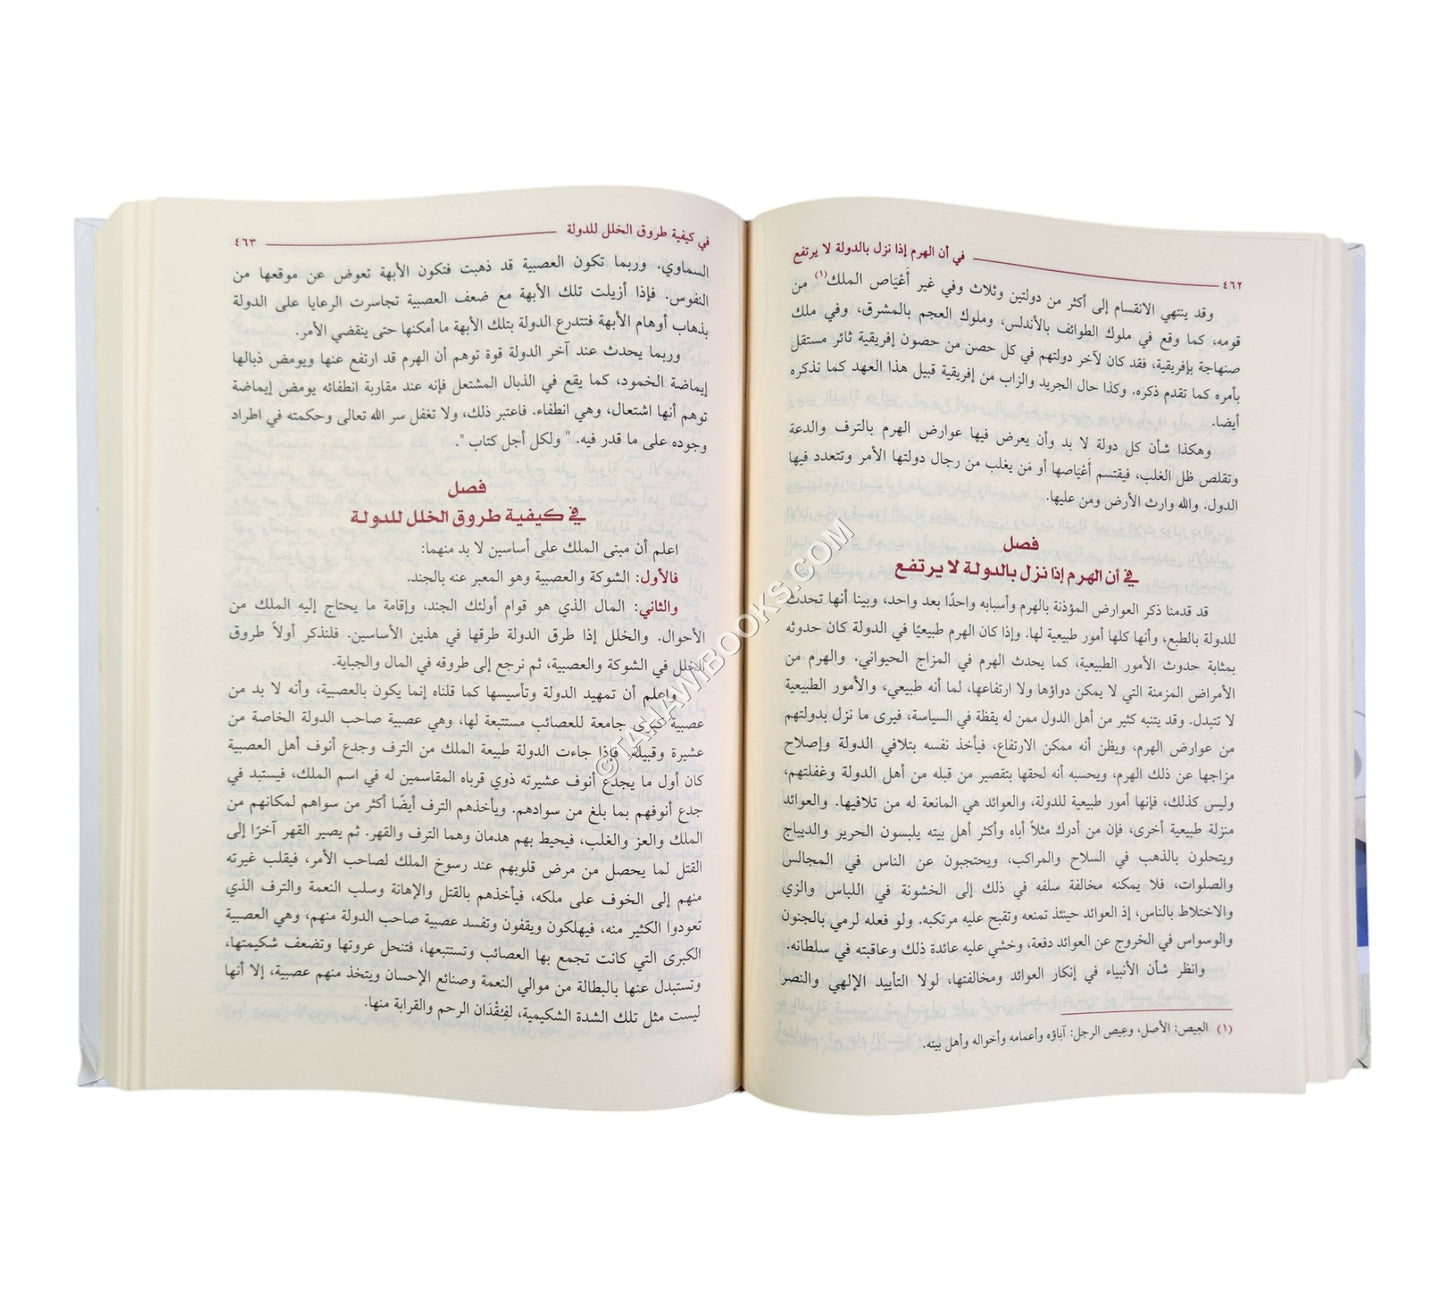 في أن الهرم إذا نزل بالدولة لا يرتفع
٤٦٢
وقد ينتهي الانقسام إلى أكثر من دولتين وثلاث وفي غير أَعْيَاص الملك(١) من
قومه، كما وقع في ملوك الطوائف بالأندلس، وملوك العجم بالمشرق، وفي ملك
صنهاجة بإفريقية، فقد كان لآخر دولتهم في كل حصن من حصون إفريقية ثائر مستقل
بأمره كما تقدم ذكره. وكذا حال الجريد والزاب من إفريقية قبيل هذا العهد كما نذكره
أيضا.
وهكذا شأن كل دولة لا بد وأن يعرض فيها عوارض الهرم بالترف والدعة
وتقلص ظل الغلب، فيقتسم أَعْيَاصها أو مَن يغلب من رجال دولتها الأمر وتتعدد فيها
الدول. والله وارث الأرض ومن عليها.
فصل
في أن الهرم إذا نزل بالدولة لا يرتفع
قد قدمنا ذكر العوارض المؤذنة بالهرم وأسبابه واحدًا بعد واحد، وبينا أنها تحدث
للدولة بالطبع، وأنها كلها أمور طبيعية لها. وإذا كان الهرم طبيعيًا في الدولة كان حدوثه
بمثابة حدوث الأمور الطبيعية، كما يحدث الهرم في المزاج الحيواني. والهرم من
الأمراض المزمنة التي لا يمكن دواؤها ولا ارتفاعها، لما أنه طبيعي، والأمور الطبيعية
لا تتبدل. وقد يتنبه كثير من أهل الدول ممن له يقظة في السياسة، فيرى ما نزل بدولتهم
من عوارض الهرم، ويظن أنه ممكن الارتفاع، فيأخذ نفسه بتلافي الدولة وإصلاح
مزاجها عن ذلك الهرم، ويحسبه أنه لحقها بتقصير من قبله من أهل الدولة وغفلتهم،
وليس كذلك، فإنها أمور طبيعية للدولة، والعوائد هي المانعة له من تلافيها. والعوائد
منزلة طبيعية أخرى، فإن من أدرك مثلاً أباه وأكثر أهل بيته يلبسون الحرير والديباج
ويتحلون بالذهب في السلاح والمراكب، ويحتجبون عن الناس في المجالس
والصلوات، فلا يمكنه مخالفة سلفه في ذلك إلى الخشونة في اللباس والزي
والاختلاط بالناس، إذ العوائد حينئذ تمنعه وتقبح عليه مرتكبه. ولو فعله لرمي بالجنون
والوسواس في الخروج عن العوائد دفعة، وخشي عليه عائدة ذلك وعاقبته في سلطانه.
وانظر شأن الأنبياء في إنكار العوائد ومخالفتها، لولا التأييد الإلهي والنصر
(١) العِيص: الأصل، وعِيص الرجل: آباؤه وأعمامه وأخواله وأهل بيته.
في كيفية طروق الخلل للدولة
٤٦٣
السماوي. وربما تكون العصبية قد ذهبت فتكون الأبهة تعوض عن موقعها من
النفوس. فإذا أزيلت تلك الأبهة مع ضعف العصبية تجاسرت الرعايا على الدولة
بذهاب أوهام الأبهة فتتدرع الدولة بتلك الأبهة ما أمكنها حتى ينقضي الأمر.
وربما يحدث عند آخر الدولة قوة توهم أن الهرم قد ارتفع عنها ويومض ذبالها
إيماضة الخمود، كما يقع في الذبال المشتعل فإنه عند مقاربة انطفائه يومض إيماضة
توهم أنها اشتعال، وهي انطفاء. فاعتبر ذلك، ولا تغفل سر الله تعالى وحكمته في اطراد
وجوده على ما قدر فيه. " ولكل أجل كتاب ".
فصل
في كيفية طروق الخلل للدولة
اعلم أن مبنى الملك على أساسين لا بد منهما:
فالأول: الشوكة والعصبية وهو المعبر عنه بالجند.
والثاني: المال الذي هو قوام أولئك الجند، وإقامة ما يحتاج إليه الملك من
الأحوال. والخلل إذا طرق الدولة طرقها في هذين الأساسين. فلنذكر أولاً طروق
الخلل في الشوكة والعصبية، ثم نرجع إلى طروقه في المال والجباية.
واعلم أن تمهيد الدولة وتأسيسها كما قلناه إنما يكون بالعصبية، وأنه لا بد من
عصبية كبرى جامعة للعصائب مستتبعة لها، وهي عصبية صاحب الدولة الخاصة من
عشيرة وقبيلة. فإذا جاءت الدولة طبيعة الملك من الترف وجدع أنوف أهل العصبية
كان أول ما يجدع أنوف عشيرته ذوي قرباه المقاسمين له في اسم الملك، فيستبد في
جدع أنوفهم بما بلغ من سوادهم. ويأخذهم الترف أيضًا أكثر من سواهم لمكانهم من
الملك والعز والغلب، فيحيط بهم هدمان وهما الترف والقهر. ثم يصير القهر آخرًا إلى
القتل لما يحصل من مرض قلوبهم عند رسوخ الملك لصاحب الأمر، فيقلب غيرته
منهم إلى الخوف على ملكه، فيأخذهم بالقتل والإهانة وسلب النعمة والترف الذي
تعودوا الكثير منه، فيهلكون ويقفون وتفسد عصبية صاحب الدولة منهم، وهي العصبية
الكبرى التي كانت تجمع بها العصائب وتستتبعها، فتنحل عروتها وتضعف شكيمتها،
وتستبدل عنها بالبطالة من موالي النعمة وصنائع الإحسان ويتخذ منهم عصبية، إلا أنها
ليست مثل تلك الشدة الشكيمية، لفِقْدَان الرحم والقرابة منها.
©TAHAWIBOOKS.COM